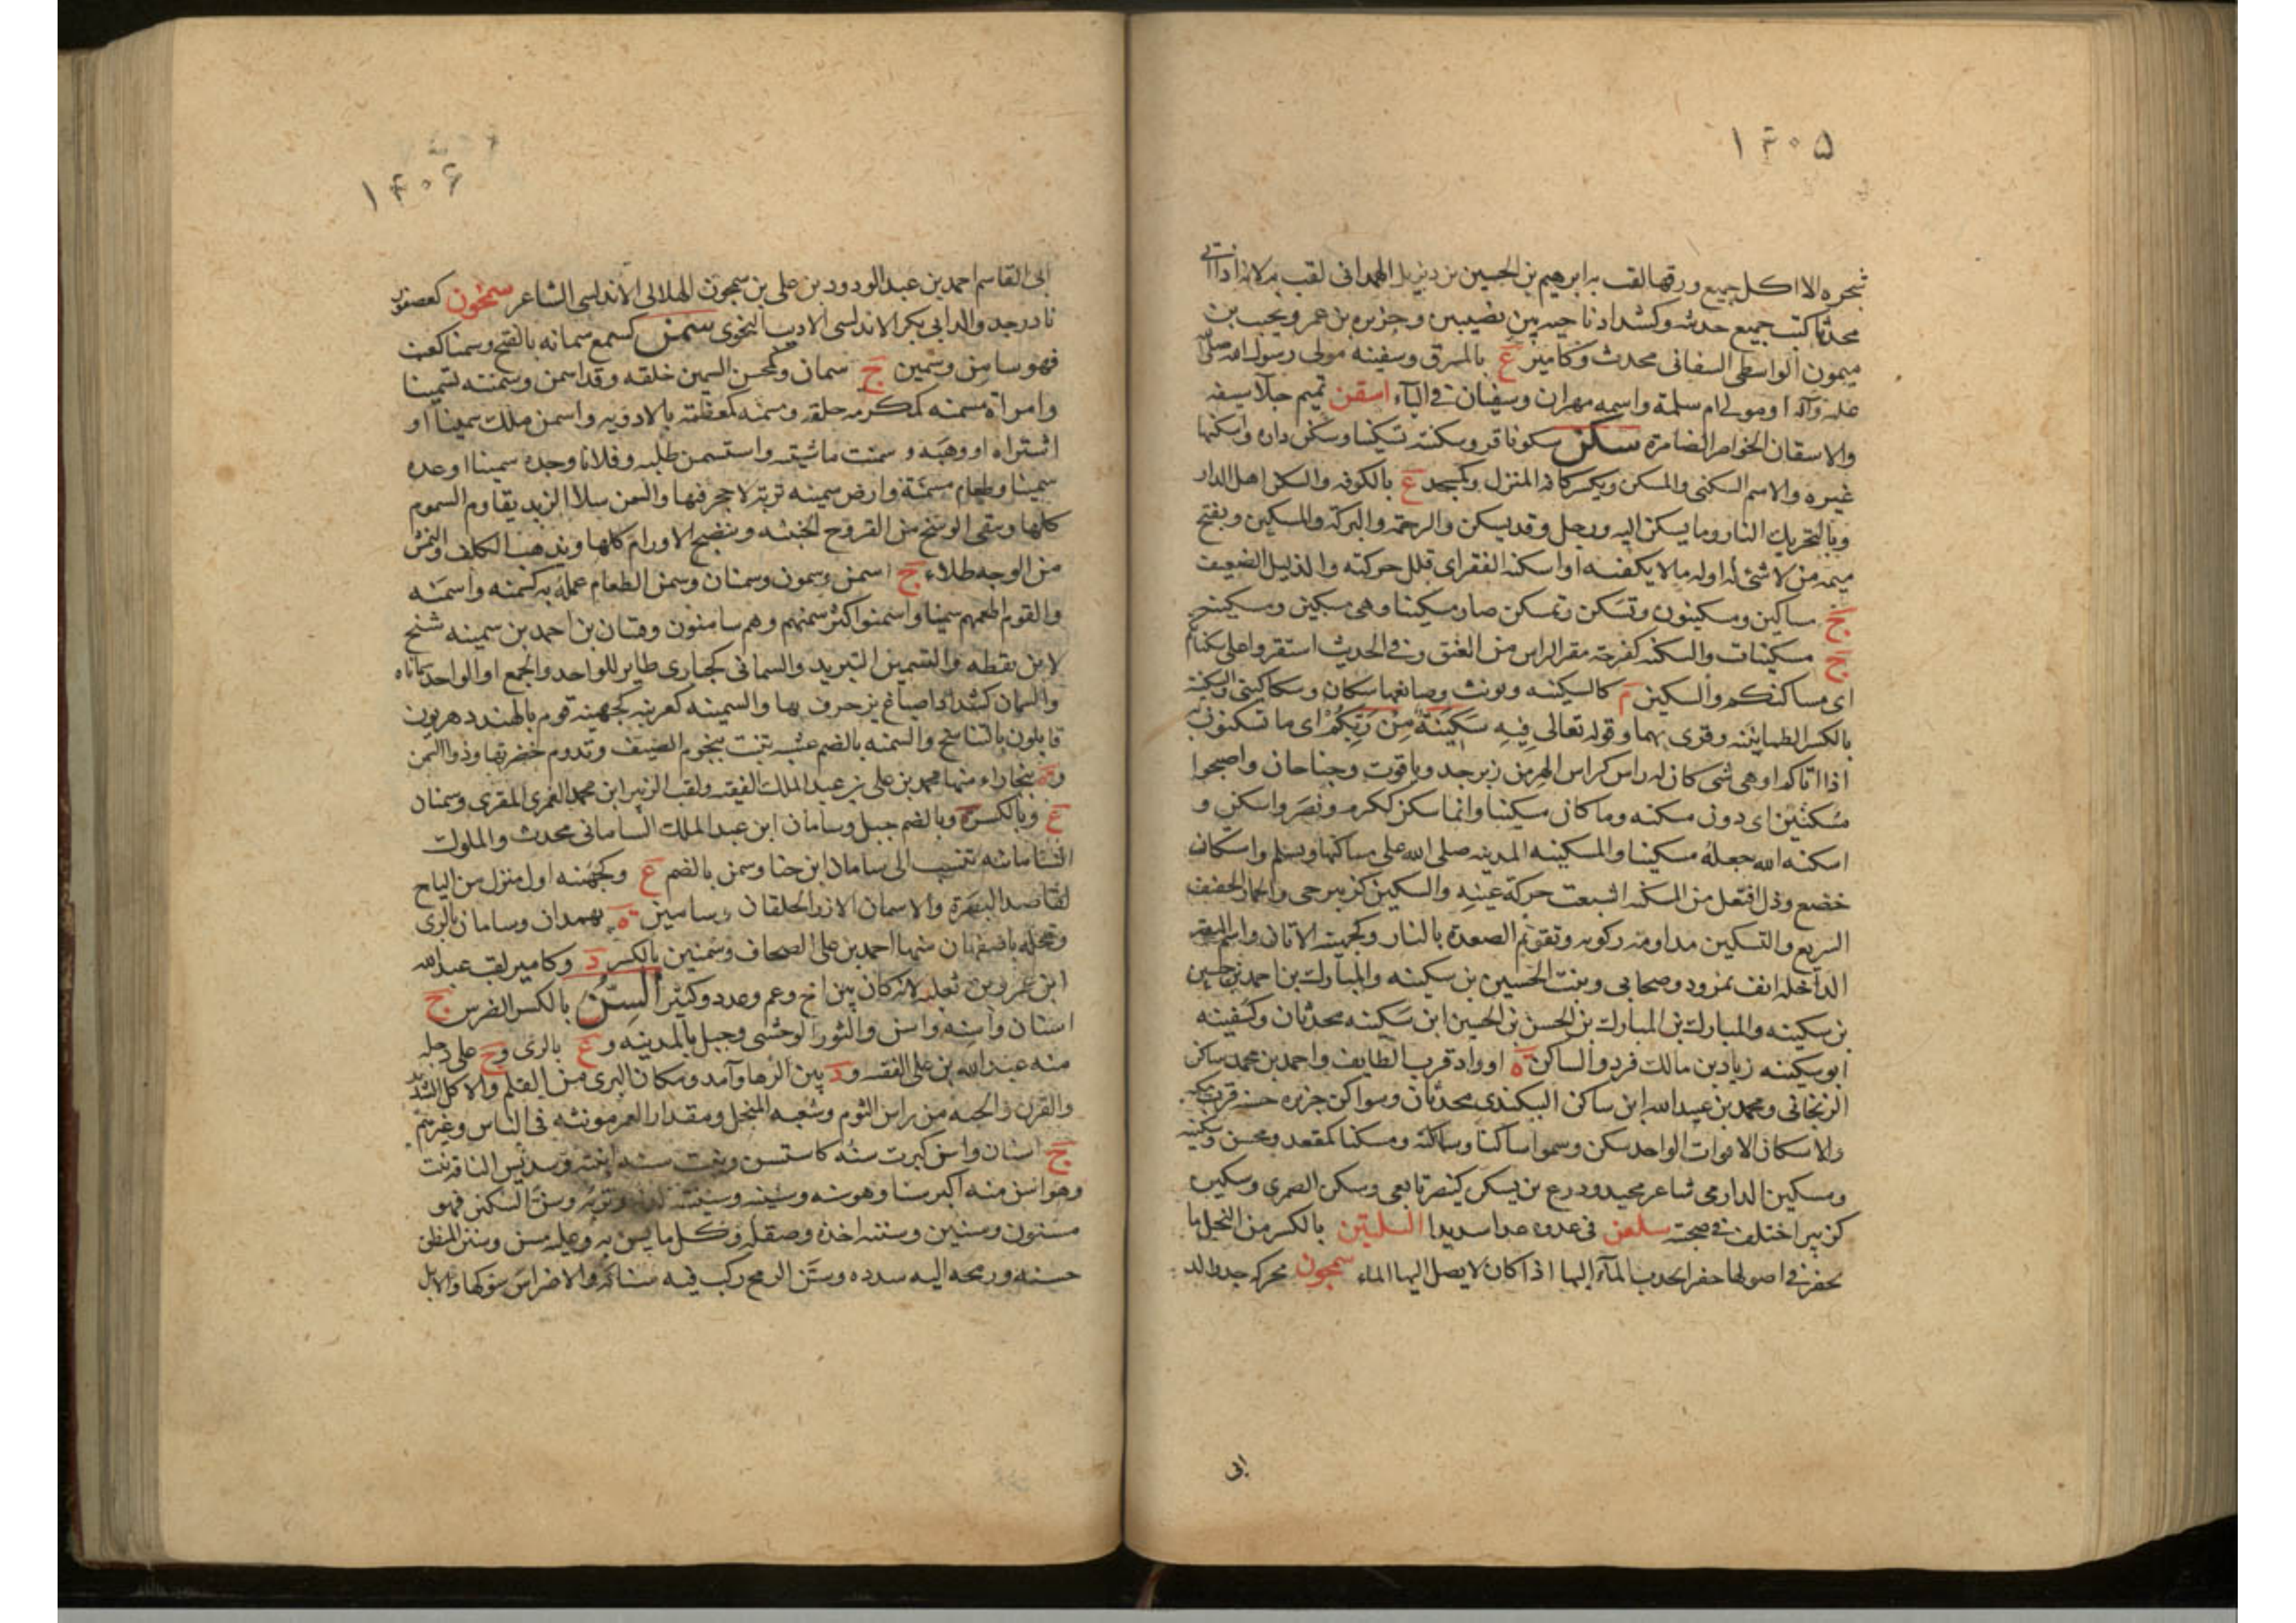 ١٣٠٥
شجره الا اكل جميع ورقها لقب به ابرهيم بن الحسين بن ديزيل الهمدانى لقب به لانه اذا اتى
محدثا كتب جميع حديثه وكشداد ناحيه بين نصيبين وجزيره بن عمر ويجيب بن
ميمون الواسطى السفانى محدث وكامير ع بالمسرق وسفينه مولى رسول الله صلى الله
عليه وآله او مولى ام سلمة واسمه مهران وسفيان فى الياء اسقن تميم جلا سيفه
والاسقان الخواصر الضامرة سكن سكونا قر وسكنته تسكينا وسكن داره واسكنها
غيره والاسم السكنى والمسكن ويكسر كافه المنزل وكمسجد ع بالكوفه والسكن اهل الدار
وبالتحريك النار وما يسكن اليه ورجل وقد يسكن والرحمة والبركة والمسكين ويفتح
ميمه من لا شئ له اوله ما لا يكفيه او اسكنه الفقر اى قلل حركته والذليل الضعيف
ج مساكين ومسكينون وتسكن وتمسكن صار مسكينا وهى مسكين ومسكينه
ج مسكينات والسكنه كفرحة مقر الراس من العنق وفى الحديث استقروا على سكناتكم
اى مساكنكم والسكين م كالسكينه ويونث وصانعها سكان وسكاكينى والسكينة
بالكسر الطمانينه وقرى بهما وقوله تعالى فيه سكينة من ربكم اى ما تسكنون
اذا اتاكم او هى شى كان له راس كراس الهر من زبرجد وياقوت وجناحان واصبحوا
مسكنين اى ذوى مسكنه وما كان مسكينا وانما سكن ككرم ونصر واسكن و
اسكنه الله جعله مسكينا والمسكينه المدينه صلى الله على ساكنها وسلم واستكان
خضع وذل افتعل من المسكنه اشبعت حركة عينه والسكين كزبير حى والحمار الخفيف
السريع والتسكين مداومة ركوبه وتقويم الصعدة بالنار وكجهينه الاتان واسم البقه
الداخله انف نمرود وصحابى وبنت الحسين بن سكينه والمبارك بن احمد بن حسين
بن سكينه والمبارك بن المبارك بن الحسن بن الحسين ابن سكينه محدثان وكسفينه
ابو سكينه زياد بن مالك فرد والساكن ة او واد قرب الطايف واحمد بن محمد بن ساكن
الزنجانى ومحمد بن عبد الله ابن ساكن البيكندى محدثان وسواكن جزيره حسنه قرب مكه
والاسكان الاقوات الواحد سكن وسموا ساكنا وساكنة ومسكنا كمقعد ومحسن وسكينه
ومسكين الدارمى شاعر مجيد ودرع بن يسكن كينصر تابعى وسكن الضمرى وسكين
كزبير اختلف فى صحبته سلعن فى عدوه عدا شديدا السلتين بالكسر من النخل ما
يحفر فى اصولها حفر تجذب الماء اليها اذا كان لا يصل اليها الماء سمجون محركه جد والد
ابى
١٣٠٦
ابى القاسم احمد بن عبد الودود بن على بن سمجون الهلالى الاندلسى الشاعر سمخون كعصفور
نادر جد والد ابى بكر الاندلسى الاديب النحوى سمن كسمع سمانه بالفتح وسمنا كعنب
فهو سامن وسمين ج سمان وكمحسن السمين خلقه وقد اسمن وسمنته تسمينا
وامراة مسمنه كمكرمه خلقه ومسمنه كمعظمة بالادويه واسمن ملك سمينا او
اشتراه او وهبه وسمنت ماشيته واستسمن طلبه وفلانا وجده سمينا او عده
سمينا وطعام مسمنة وارض سمينه تربة لا حجر فيها والسمن سلاء الزبد يقاوم السموم
كلها وينقى الوسخ من القروح الخبيثه وينضج الاورام كلها ويذهب الكلف والنمش
من الوجه طلاء ج اسمن وسمون وسمنان وسمن الطعام عمله به كسمنه واسمنه
والقوم اطعمهم سمينا واسمنوا اكثر سمنهم وهم سامنون وفتيان بن احمد بن سمينه شيخ
لابن نقطه والتسمين التبريد والسمانى كحبارى طاير للواحد والجمع او الواحد سماناه
والسمان كشداد اصباغ يزخرف بها والسمينه كعرنيه كجهينه قوم بالهند دهريون
قايلون بالتناسخ والسمنه بالضم عشبه تنبت بنجوم الصيف وتدوم خضرتها وذوالسمن
وة ببخاراء منها محمد بن على بن عبد الملك الفقيه ولقب الزبير ابن محمد العمرى المقرى وسمنان
ع وبالكسر د وبالضم جبل وسامان ابن عبد الملك السامانى محدث والملوك
السامانيه تنسب الى سامان ابن حيا وسمن بالضم ع وكجهينه اول منزل من النباج
لقاصد البصرة والاسمان الازر الخلقان وسامين ة بهمدان وسامان بالرى
ومحله باصفهان منها احمد بن على الصحاف وسمنين بالكسر د وكامير لقب عبد الله
ابن عمرو بن ثعلبه لانه كان بين اخ وعم وعدد وكثير السن بالكسر الضرس ج
اسنان واسنه واسن والثور الوحشى وجبل بالمدينه و ع بالرى و ح على دجله
منه عبد الله بن على الفقيه و د بين الرها وآمد ومكان البرى من القلم والاكل الشديد
والقرن والحبه من راس الثوم وشعبه المنجل ومقدار العمر مونثه فى الناس وغيرهم
ج اسنان واسن كبرت سنه كاستسن ونبت سنه وسديس الناقة نبت
وهو اسن منه اكبر سنا وهو سنه وسنينه وسن السكين فهو
مسنون وسنين وسننه احده وصقله وكل ما يسن به وعليه مسن وسنن المنطق
حسنه ورمحه اليه سدده وسن الرمح ركب فيه سنانه والاضراس سوكها والابل